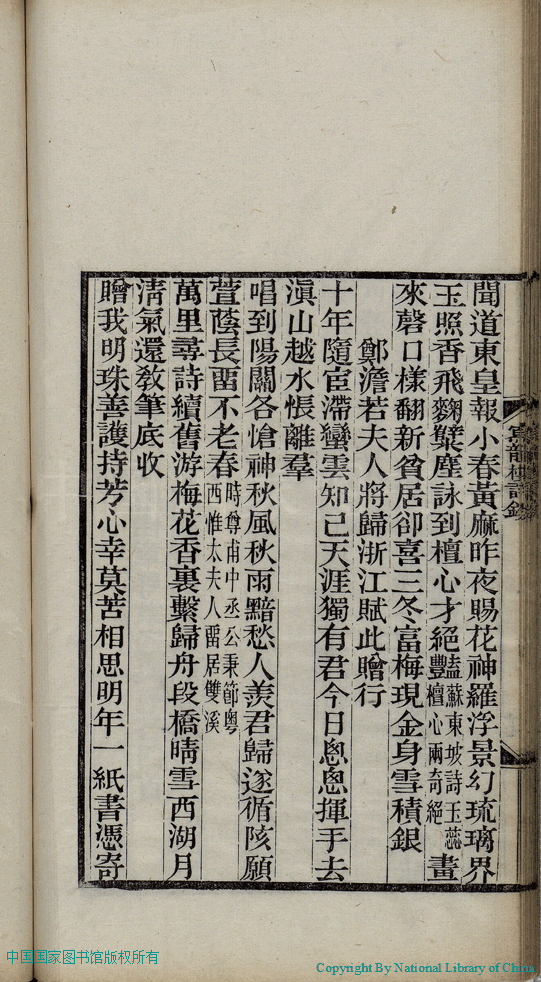 聞道東皇報小春黃麻昨夜賜花神羅浮景幻琉璃界
玉照香飛麴糱塵詠到檀心才絕蘇東坡詩玉蕊
檀心兩奇絕
豐
畫
來磬口樣翻新貧居卻喜三冬富梅現金身雪積銀
鄭澹若夫人將歸浙江賦此贈行
十年隨宦滯蠻雲知己天涯獨有君今日悤悤揮手去
滇山越水悵離羣
唱到陽關各愴神秋風秋雨黯愁人羨君歸遂循陔願
萱蔭長畱不老春時尊甫中丞公秉節粵
西惟太夫人畱居雙溪
萬里尋詩續舊游梅花香裏繫歸舟段橋晴雪西湖月
淸氣還敎筆底收
贈我明珠善護持芳心幸莫苦相思明年一紙書憑寄
韻樓詩
中国国家图书馆版权所有
Copyright By National Library of China